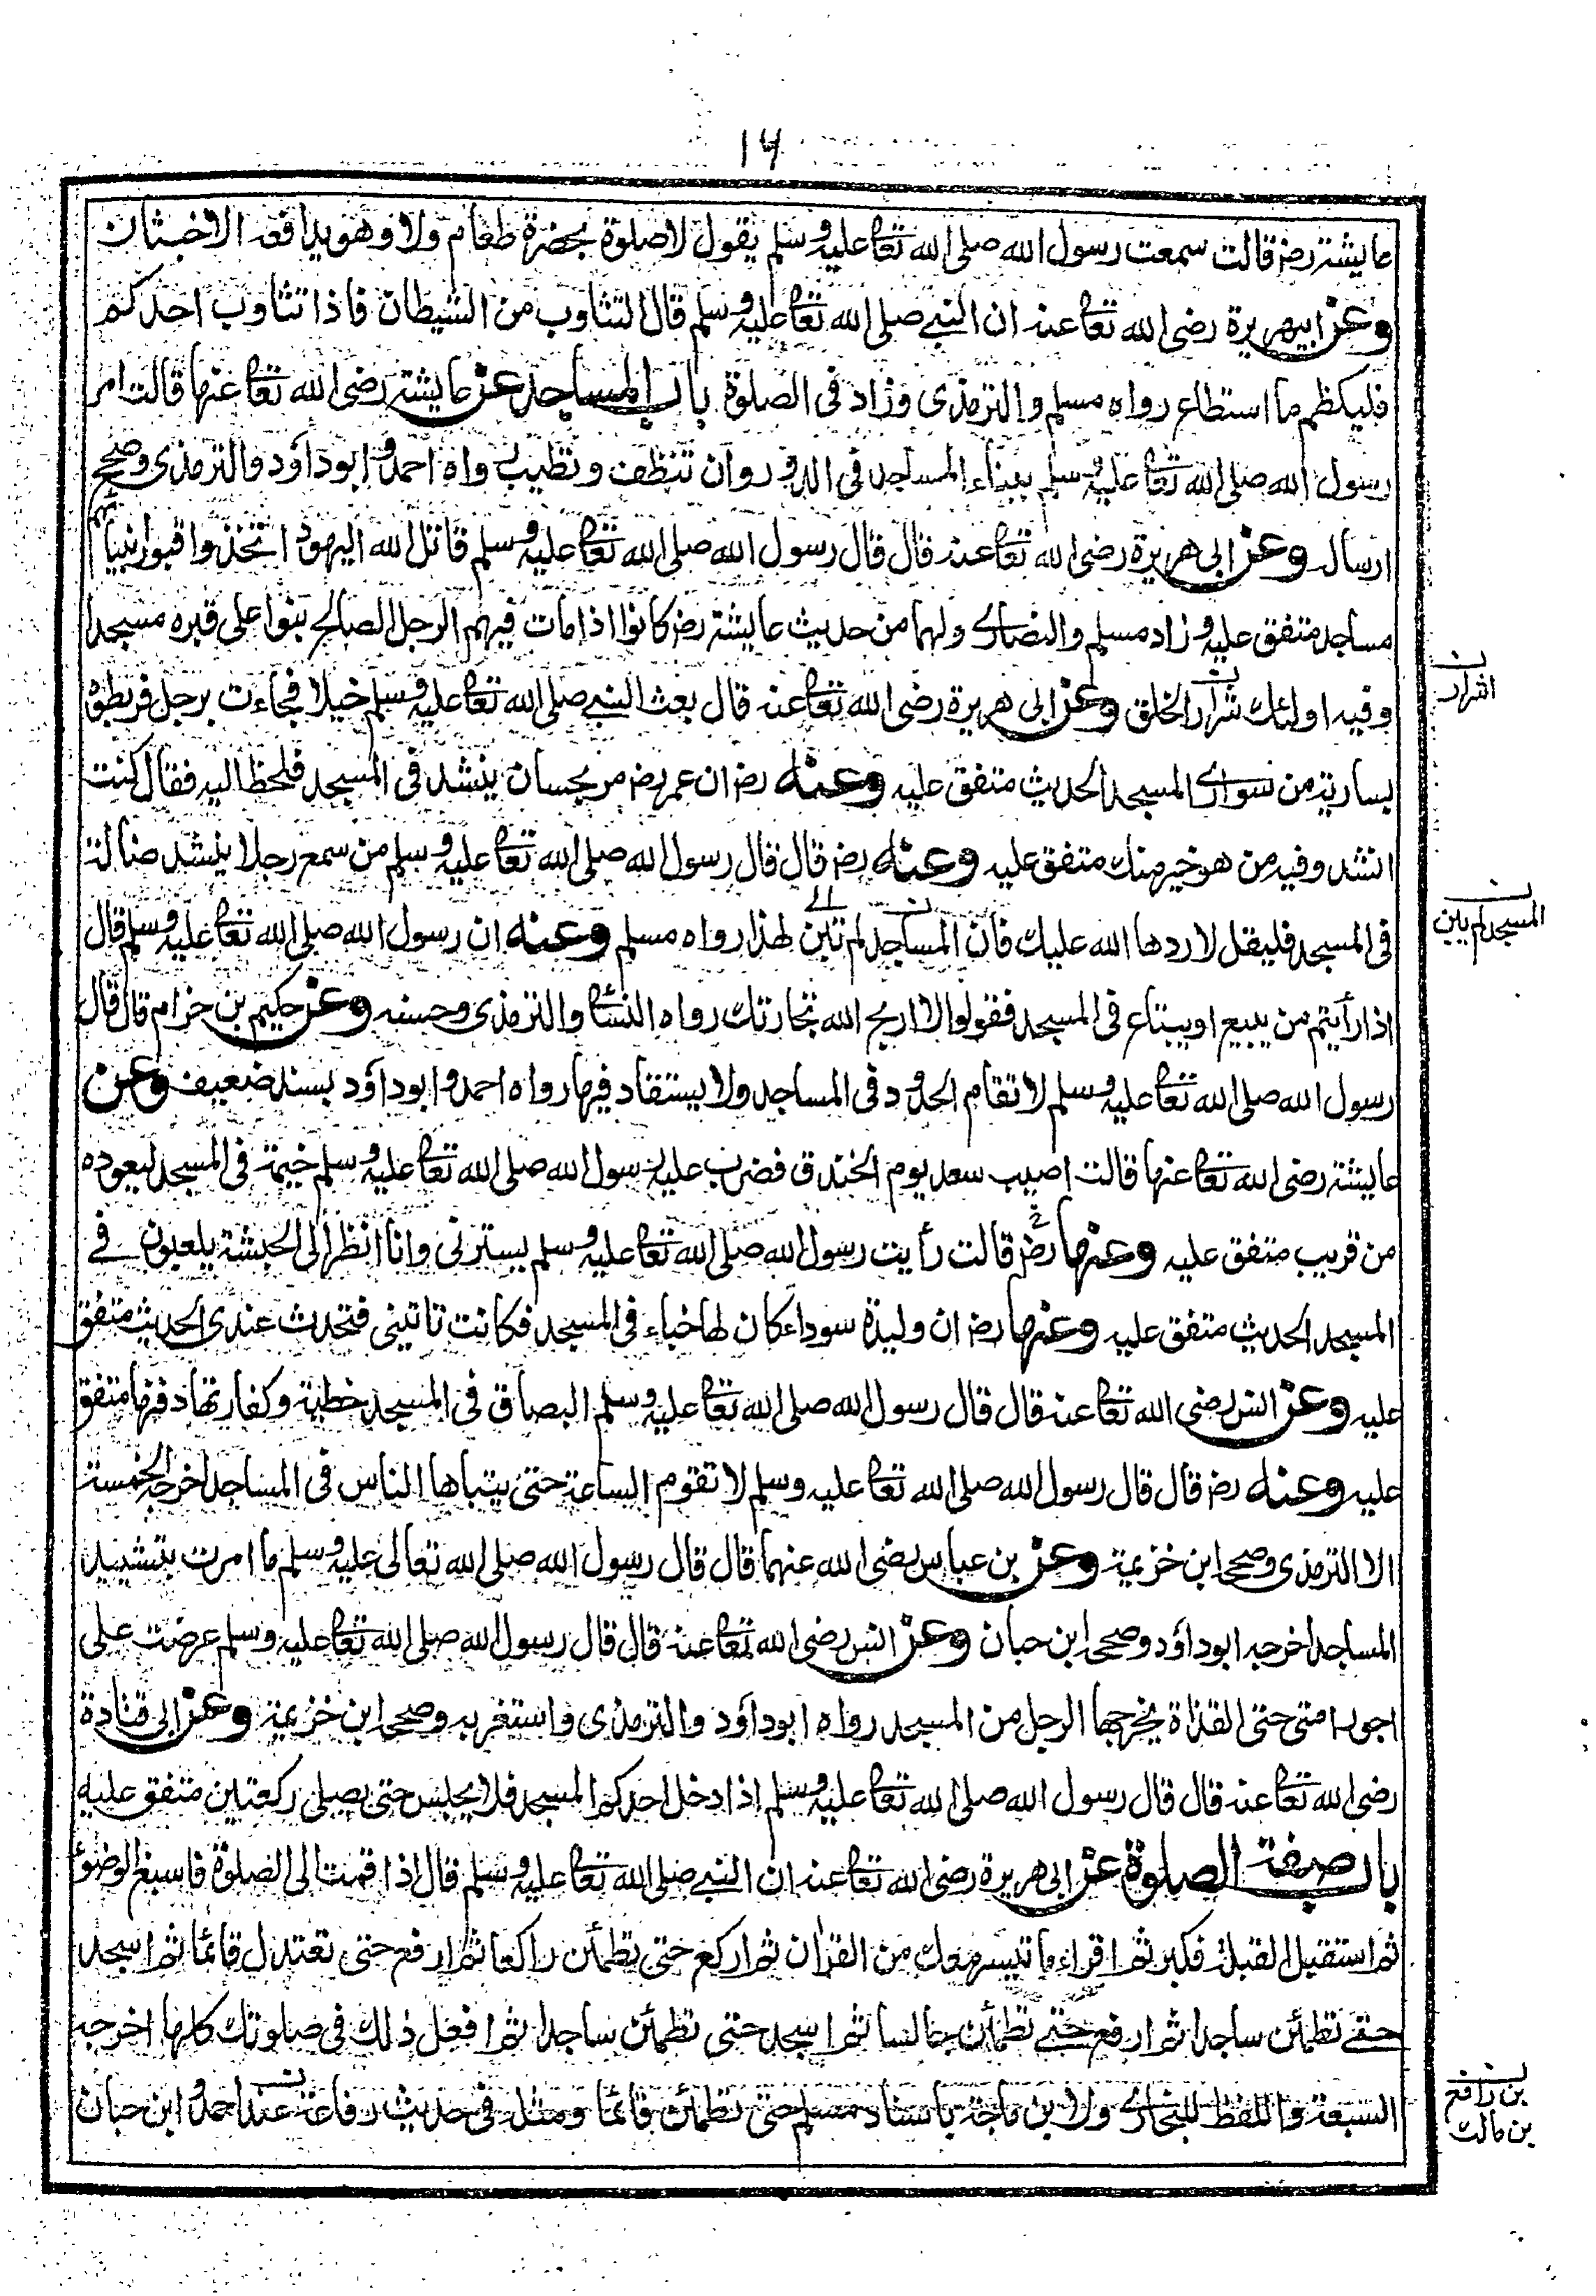 ١٦
عایشة رضـ قالت سمعت رسول الله صلى الله تعا علیه وسلم یقول لا صلوة بحضرة طعام ولا وهو یدافعه الاخبثان
وعن ابیهریرة رضی الله تعا عنه ان النبی صلى الله تعا علیه وسلم قال التثاوب من الشیطان فاذا تثاوب احدکم
فلیکظم ما استطاع رواه مسلم والترمذی وزاد فی الصلوة باب المساجد عن عایشة رضی الله تعا عنها قالت امر
رسول الله صلى الله تعا علیه وسلم ببناء المساجد فی الدور وان تنظف وتطیب رواه احمد وابوداؤد والترمذی وصحح
ارساله وعن ابی هریرة رضی الله تعا عنه قال قال رسول الله صلى الله تعا علیه وسلم قاتل الله الیهود اتخذوا قبور انبیائهم
مساجد متفق علیه وزاد مسلم والنصاری ولهما من حدیث عایشة رضـ کانوا اذا مات فیهم الرجل الصالح بنوا على قبره مسجدا
وفیه اولئك شرار الخلق وعن ابی هریرة رضی الله تعا عنه قال بعث النبی صلى الله تعا علیه وسلم خیلا فجاءت برجل فربطوه
اشرار
بساریة من سواری المسجد الحدیث متفق علیه وعنه رضـ ان عمر رضـ مر بحسان ینشد فی المسجد فلحظ الیه فقال کنت
انشد وفیه من هو خیر منك متفق علیه وعنه رضـ قال قال رسول الله صلى الله تعا علیه وسلم من سمع رجلا ینشد ضالة
فی المسجد فلیقل لا ردها الله علیك فان المساجد لم تبن لهذا رواه مسلم وعنه ان رسول الله صلى الله تعا علیه وسلم قال
المسجد لم یبن
اذا رأیتم من یبیع او یبتاع فی المسجد فقولوا لا اربح الله تجارتك رواه النسائی والترمذی وحسنه وعن حکیم بن حزام قال قال
رسول الله صلى الله تعا علیه وسلم لا تقام الحدود فی المساجد ولا یستقاد فیها رواه احمد وابوداؤد بسند ضعیف وعن
عایشة رضی الله تعا عنها قالت اصیب سعد یوم الخندق فضرب علیه رسول الله صلى الله تعا علیه وسلم خیمة فی المسجد لیعوده
من قریب متفق علیه وعنها رضـ قالت رأیت رسول الله صلى الله تعا علیه وسلم یسترنی وانا انظر الى الحبشة یلعبون فی
المسجد الحدیث متفق علیه وعنها رضـ ان ولیدة سوداء کان لها خباء فی المسجد فکانت تاتینی فتحدث عندی الحدیث متفق
علیه وعن انس رضی الله تعا عنه قال قال رسول الله صلى الله تعا علیه وسلم البصاق فی المسجد خطیة وکفارتها دفنها متفق
علیه وعنه رضـ قال قال رسول الله صلى الله تعا علیه وسلم لا تقوم الساعة حتى یتباها الناس فی المساجد اخرجه الخمسة
الا الترمذی وصححه ابن خزیمة وعن بن عباس رضی الله عنهما قال قال رسول الله صلى الله تعالى علیه وسلم ما امرت بتشیید
المساجد اخرجه ابوداؤد وصححه ابن حبان وعن انس رضی الله تعا عنه قال قال رسول الله صلى الله تعا علیه وسلم عرضت على
اجور امتی حتى القذاة یخرجها الرجل من المسجد رواه ابوداؤد والترمذی واستغربه وصححه ابن خزیمة وعن ابی قتادة
رضی الله تعا عنه قال قال رسول الله صلى الله تعا علیه وسلم اذا دخل احدکم المسجد فلا یجلس حتى یصلی رکعتین متفق علیه
باب صفة الصلوة عن ابی هریرة رضی الله تعا عنه ان النبی صلى الله تعا علیه وسلم قال اذا قمت الى الصلوة فاسبغ الوضوء
ثم استقبل القبلة فکبر ثم اقراء ما تیسر معك من القرآن ثم ارکع حتى تطمئن راکعا ثم ارفع حتى تعتدل قائما ثم اسجد
حتى تطمئن ساجدا ثم ارفع حتى تطمئن جالسا ثم اسجد حتى تطمئن ساجدا ثم افعل ذلك فی صلوتك کلها اخرجه
السبعة واللفظ للبخاری ولابن ماجة باسناد مسلم حتى تطمئن قائما ومثله فی حدیث رفاعة عند احمد وابن حبان
بن رافع
بن مالك